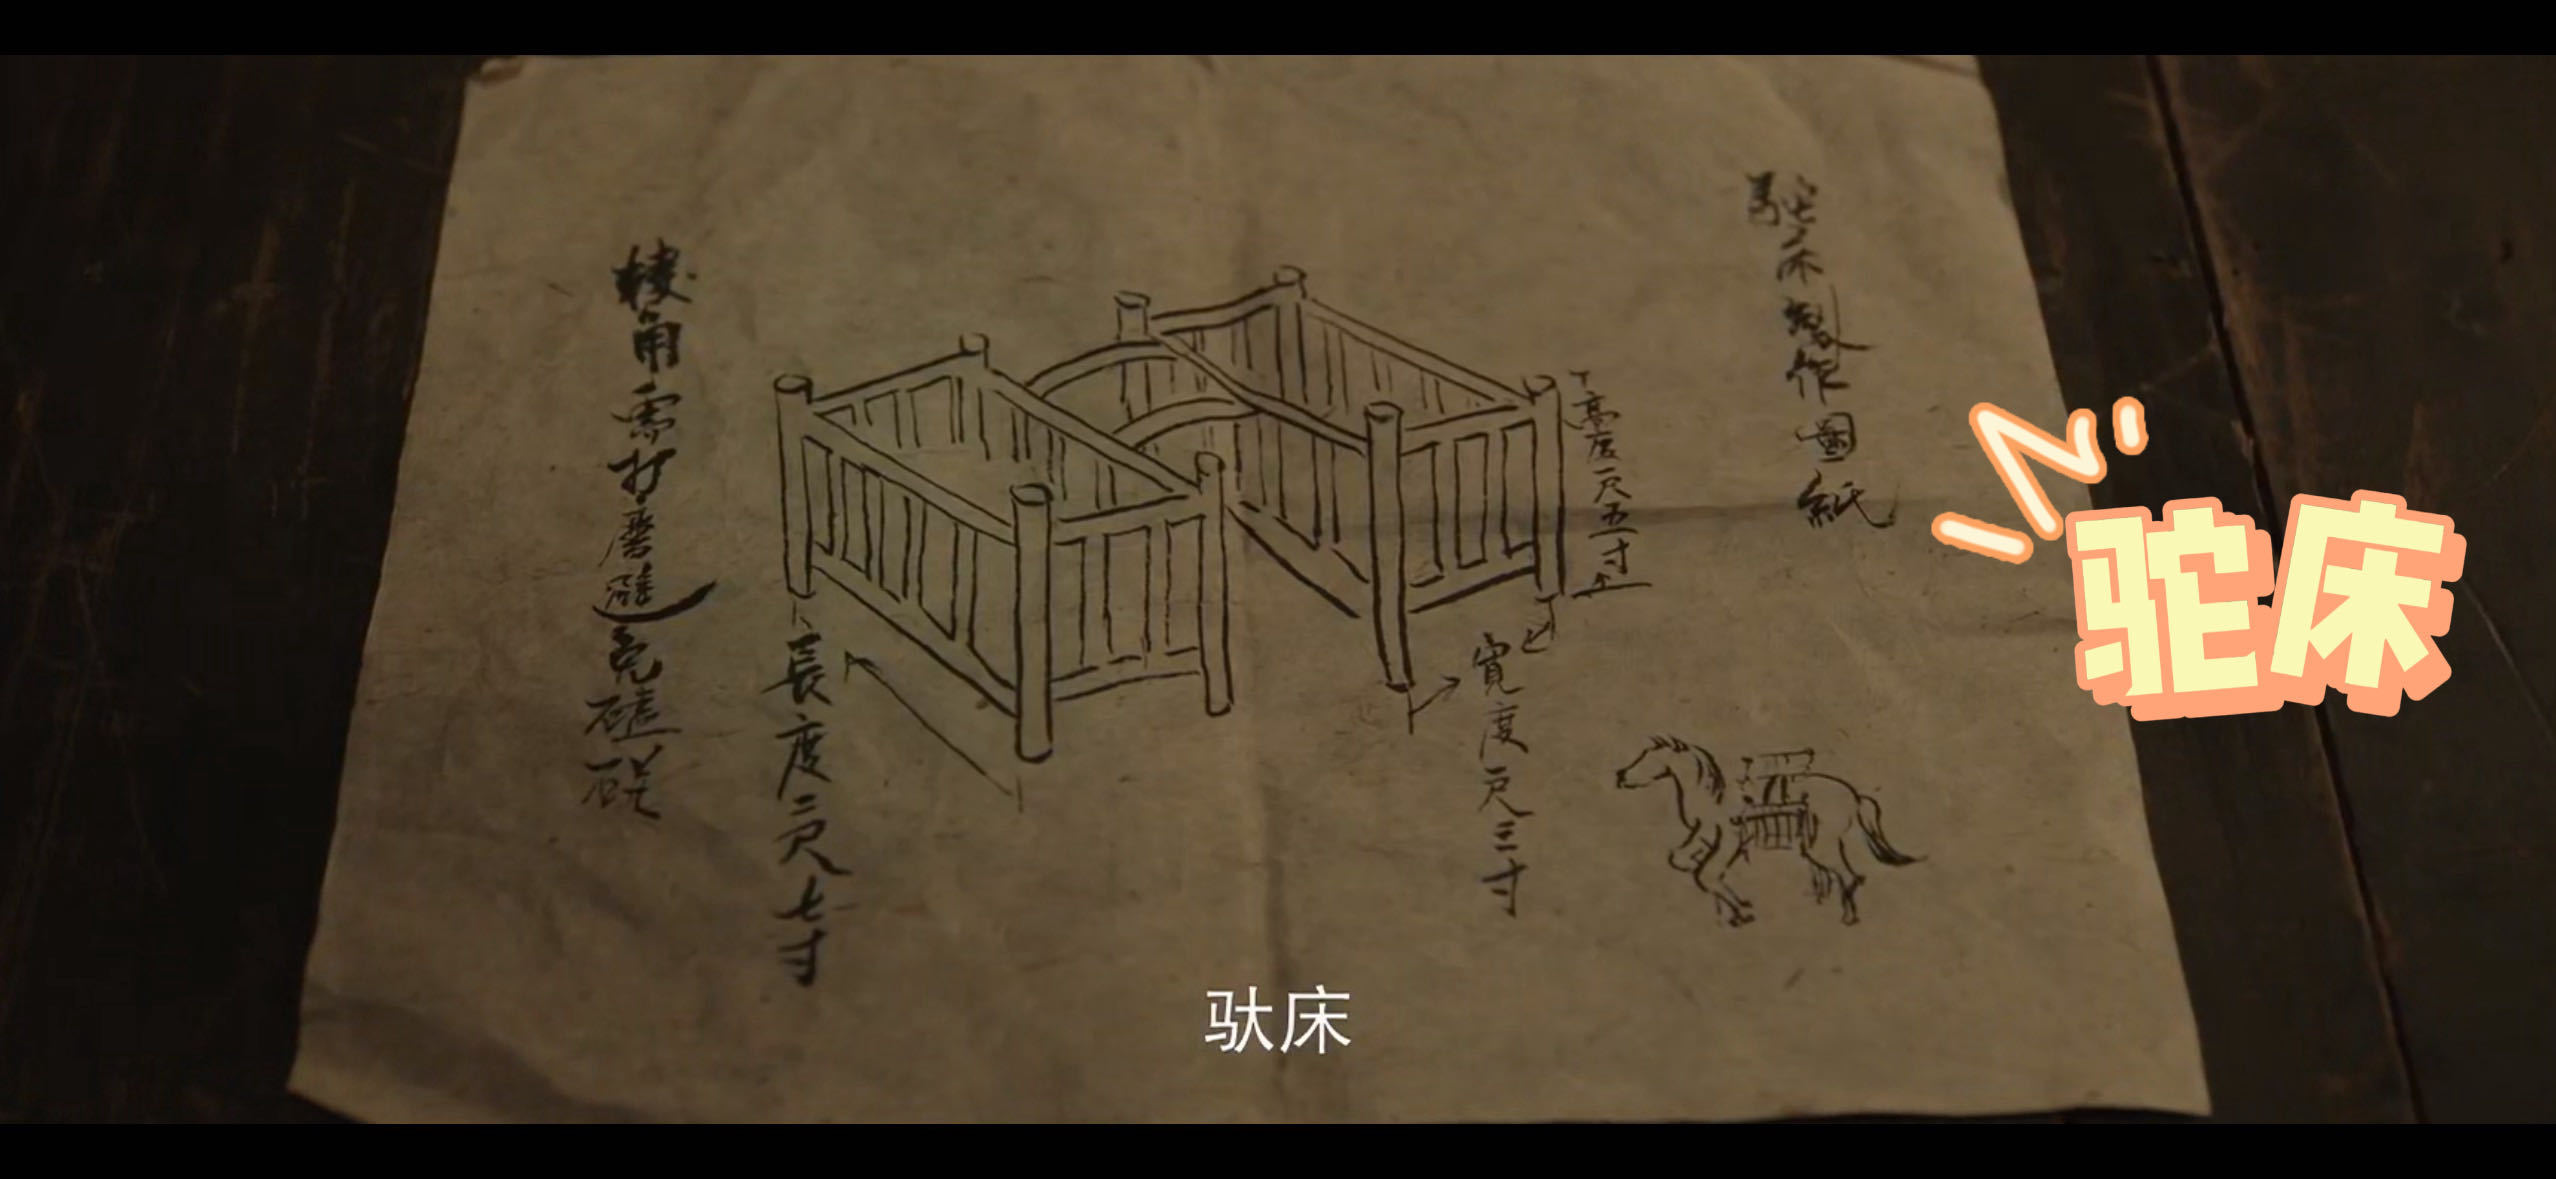 駝床製作圖紙
高度一尺五寸
寬度一尺三寸
長度二尺七寸
棱角需打磨避免磕碰
驼床
驮床